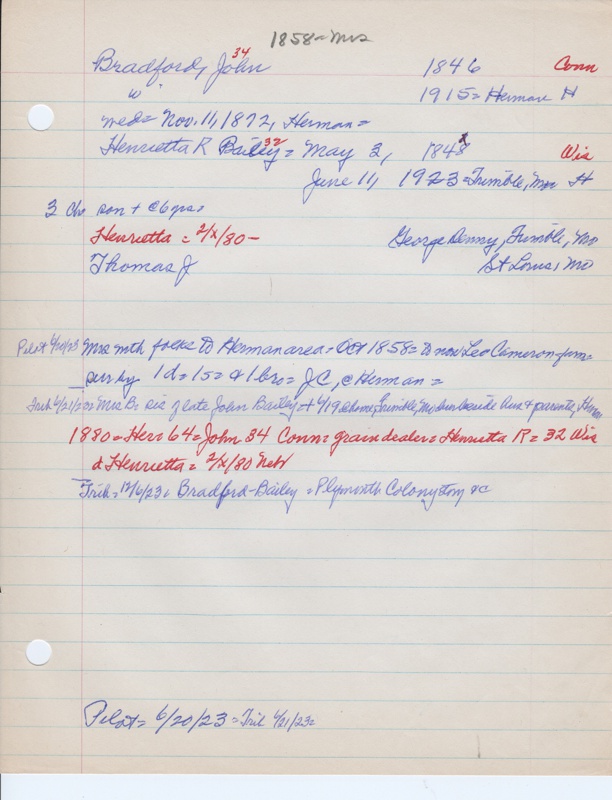 1858 = Mrs
Bradford, John 34 1846 Conn
w 1915 = Herman H
med = Nov. 11, 1872, Herman =
Henrietta R Bailey 32 = May 2, 1848 Wis
June 11, 1923 = Trimble, Mo H
3 Ch son + @ 6 yrs =
Henrietta = 2/X/80 - George Denny, Trimble, Mo
Thomas J St Louis, Mo
Pilot 6/20/23 Mrs with folks to Herman area = Oct 1858 = to now Leo Cameron farm
sur by 1 d = 1 s = & 1 bro = J C, @ Herman =
Trib 6/21/23 = Mrs B = sis of late John Bailey = + 4/19 @ home, Trimble, Mo bur beside hus + parents, Herman
1880 = Her 64 = John 34 Conn = grain dealer = Henrietta R = 32 Wis
& Henrietta = 2/X/80 Nebr
Trib = 12/6/23 = Bradford-Bailey = Plymouth Colony &c
Pilot = 6/20/23 = Trib 6/21/23 =